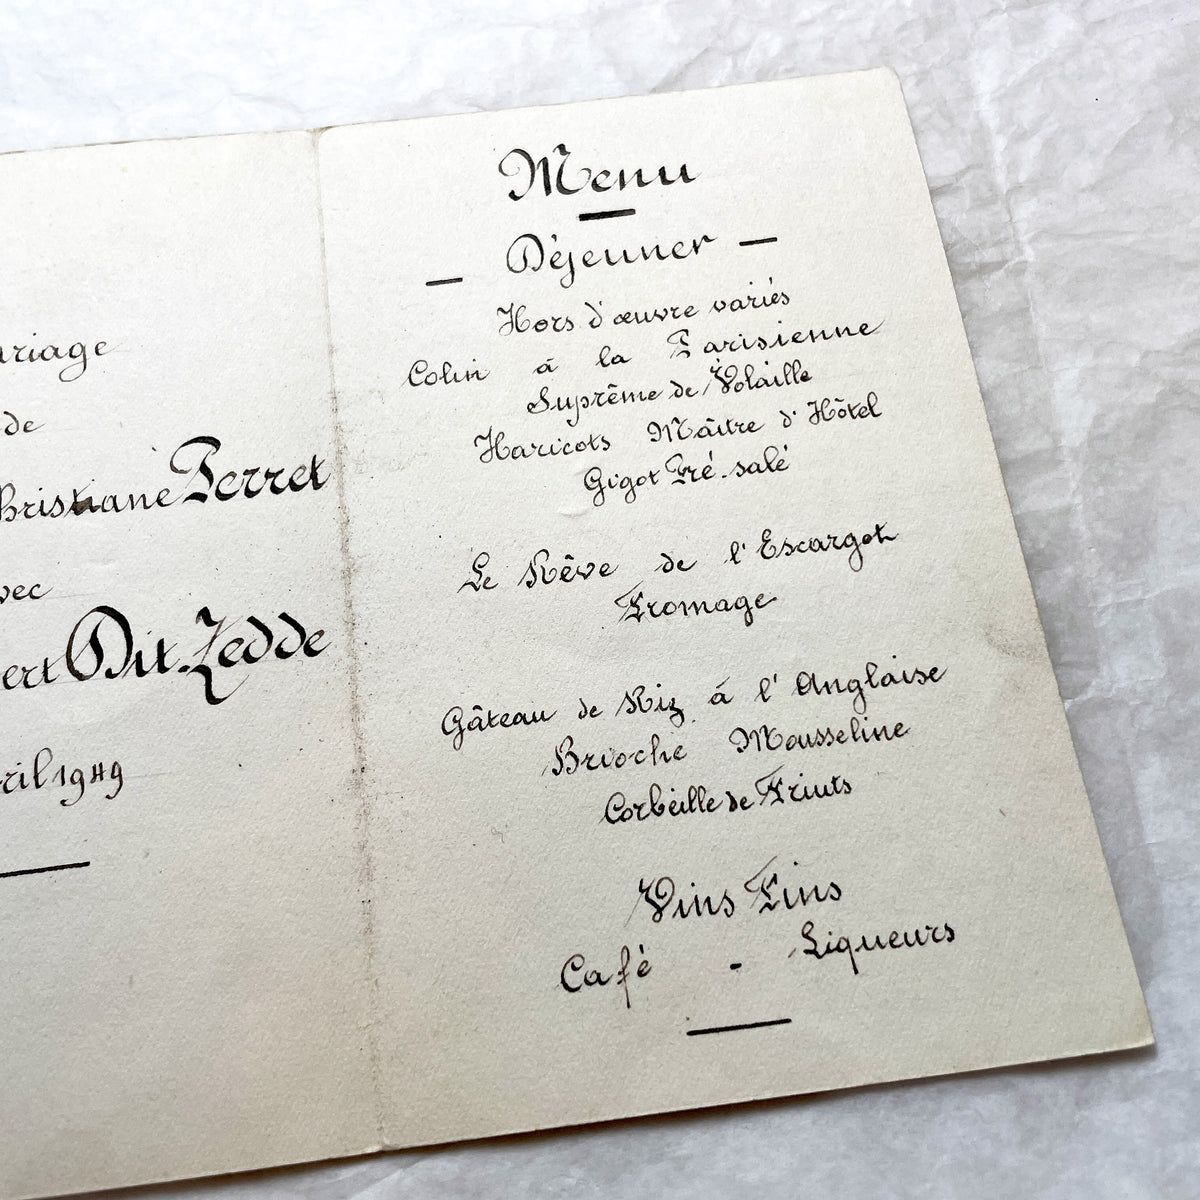 ariage
de
hristiane Perret
vec
ert Dit-Zedde
ril 1949
Menu
Déjeuner
Hors d'œuvre variés
Colin à la Parisienne
Suprême de Volaille
Haricots Maître d'Hôtel
Gigot Pré-salé
Le Rêve de l'Escargot
Fromage
Gâteau de Riz à l'Anglaise
Brioche Mousseline
Corbeille de Friuts
Vins Fins
Café - Liqueurs